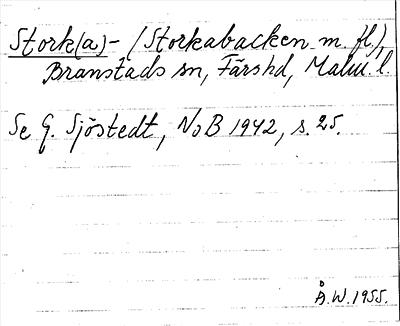 Stork(a)- (Storkabacken m. fl.),
Branstads sn, Färshd, Malm. l.
Se G. Sjöstedt, NoB 1942, s. 25.
Å.W. 1955.